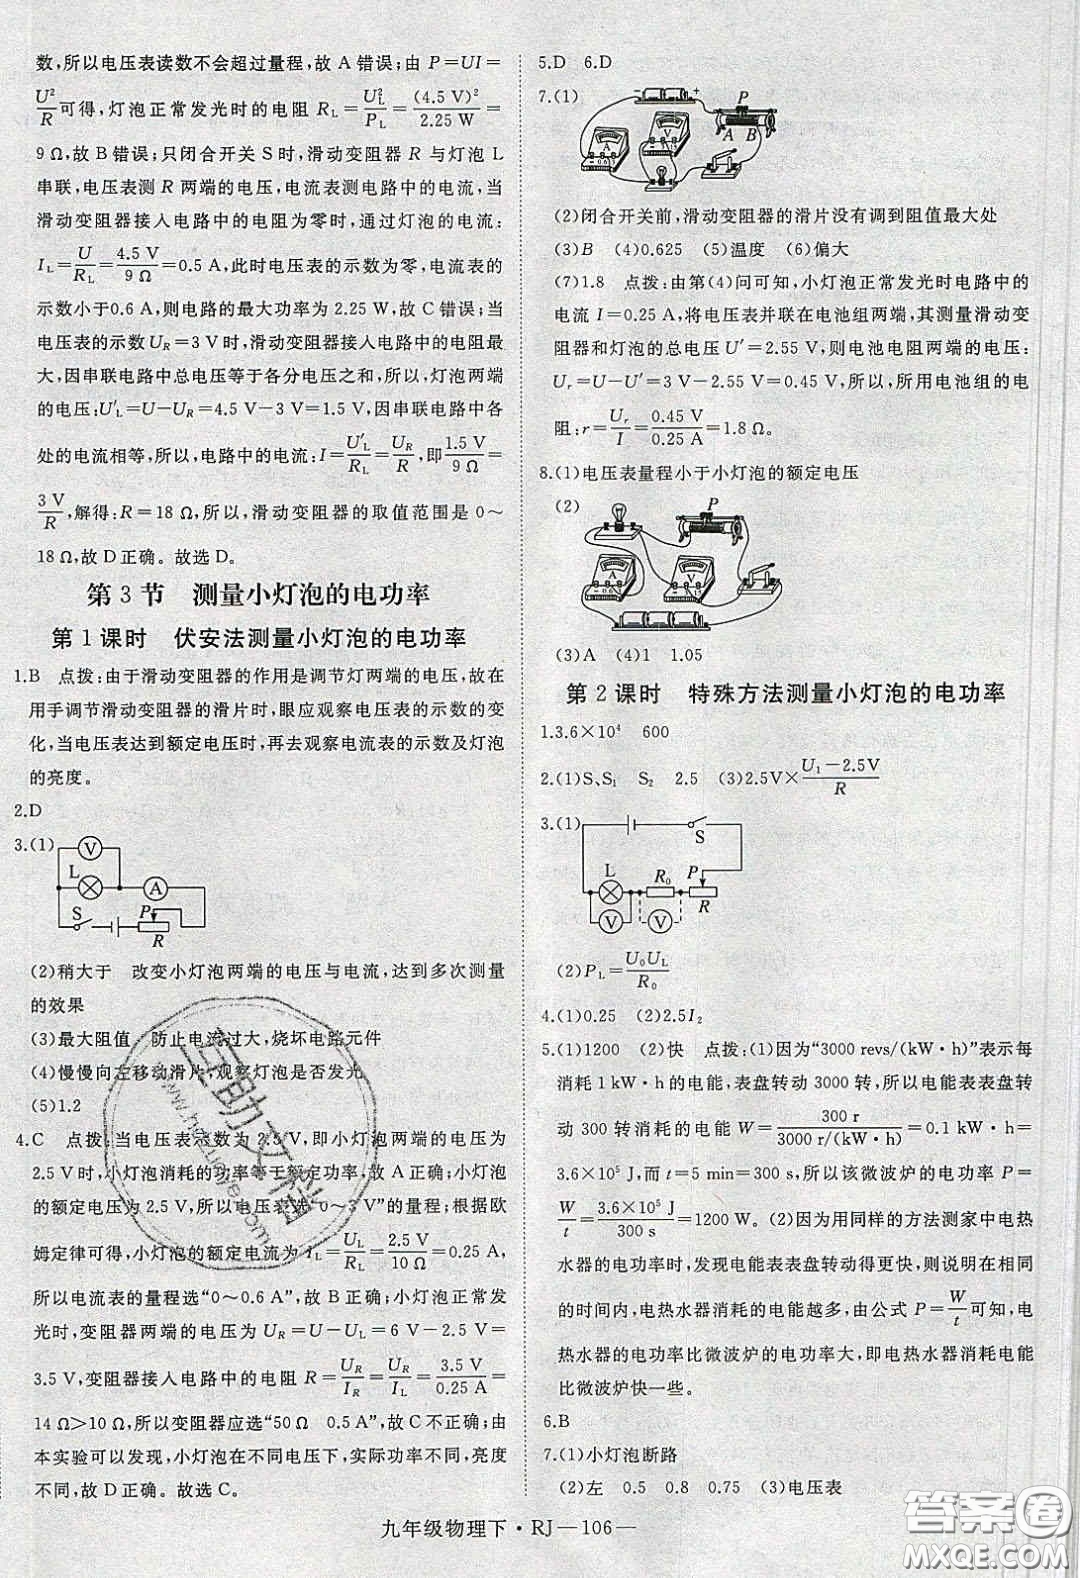 数,所以电压表读数不会超过量程,故 A 错误;由 P=UI=
U²/R 可得,灯泡正常发光时的电阻 R_L=U²_L/P_L=(4.5 V)²/2.25 W=
9 Ω,故 B 错误;只闭合开关 S 时,滑动变阻器 R 与灯泡 L
串联,电压表测 R 两端的电压,电流表测电路中的电流,当
滑动变阻器接入电路中的电阻为零时,通过灯泡的电流:
I_L=U/R_L=4.5 V/9 Ω=0.5 A,此时电压表的示数为零,电流表的
示数小于0.6 A,则电路的最大功率为 2.25 W,故 C 错误;当
电压表的示数 U_R=3 V时,滑动变阻器接入电路中的电阻最
大,因串联电路中总电压等于各分电压之和,所以,灯泡两端
的电压:U′_L=U-U_R=4.5 V-3 V=1.5 V,因串联电路中各
处的电流相等,所以,电路中的电流:I=U′_L/R_L=U_R/R,即1.5 V/9 Ω
=3 V/R,解得:R=18 Ω,所以,滑动变阻器的取值范围是 0~
18 Ω,故 D 正确。故选 D。
第 3 节 测量小灯泡的电功率
第 1 课时 伏安法测量小灯泡的电功率
1.B 点拨:由于滑动变阻器的作用是调节灯两端的电压,故在
用手调节滑动变阻器的滑片时,眼应观察电压表的示数的变
化,当电压表达到额定电压时,再去观察电流表的示数及灯泡
的亮度。
2.D
3.(1)
V
L
A
S
P
R
(2)稍大于 改变小灯泡两端的电压与电流,达到多次测量
的效果
(3)最大阻值 防止电流过大,烧坏电路元件
(4)慢慢向左移动滑片,观察灯泡是否发光
(5)1.2
4.C 点拨:当电压表示数为 2.5 V,即小灯泡两端的电压为
2.5 V时,小灯泡消耗的功率等于额定功率,故 A 正确;小灯泡
的额定电压为 2.5 V,所以电压表选“0~3 V”的量程;根据欧
姆定律可得,小灯泡的额定电流为 I_L=U_L/R_L=2.5 V/10 Ω=0.25 A,
所以电流表的量程选“0~0.6 A”,故 B 正确;小灯泡正常发
光时,变阻器两端的电压为 U_R=U-U_L=6 V-2.5 V=
3.5 V,变阻器接入电路中的电阻 R=U_R/I_R=U_R/I_L=3.5 V/0.25 A=
14 Ω>10 Ω,所以变阻器应选“50 Ω 0.5 A”,故 C 错误;由
本实验可以发现,小灯泡在不同电压下,实际功率不同,亮度
不同,故 D 正确。故选 C。
5.D 6.D
7.(1)
P
A B
(2)闭合开关前,滑动变阻器的滑片没有调到阻值最大处
(3)B (4)0.625 (5)温度 (6)偏大
(7)1.8 点拨:由第(4)问可知,小灯泡正常发光时电路中的
电流 I=0.25 A,将电压表并联在电池组两端,其测量滑动变
阻器和灯泡的总电压 U′=2.55 V,则电池电阻两端的电压:
U_r=U-U′=3 V-2.55 V=0.45 V,所以,所用电池组的电
阻:r=U_r/I=0.45 V/0.25 A=1.8 Ω。
8.(1)电压表量程小于小灯泡的额定电压
(2)
P
(3)A (4)1 1.05
第 2 课时 特殊方法测量小灯泡的电功率
1.3.6×10⁴ 600
2.(1)S、S₁ S₂ 2.5 (3)2.5V×(U₁-2.5V)/R
3.(1)
S
L
R₀
P
R
V
V
(2)P_L=U₀U_L/R₀
4.(1)0.25 (2)2.5I₂
5.(1)1200 (2)快 点拨:(1)因为“3000 revs/(kW·h)”表示每
消耗 1 kW·h 的电能,表盘转动 3000 转,所以电能表表盘转
动 300 转消耗的电能 W=300 r/3000 r/(kW·h)=0.1 kW·h=
3.6×10⁵ J,而 t=5 min=300 s,所以该微波炉的电功率 P=
W/t=3.6×10⁵ J/300 s=1200 W。(2)因为用同样的方法测家中电热
水器的电功率时,发现电能表表盘转动得更快,则说明在相同
的时间内,电热水器消耗的电能越多,由公式 P=W/t可知,电
热水器的电功率比微波炉的电功率大,即电热水器消耗电能
比微波炉快一些。
6.B
7.(1)小灯泡断路
(2)左 0.5 0.8 0.75 (3)电压表
九年级物理下·RJ—106—
答案圈
MXQE.COM